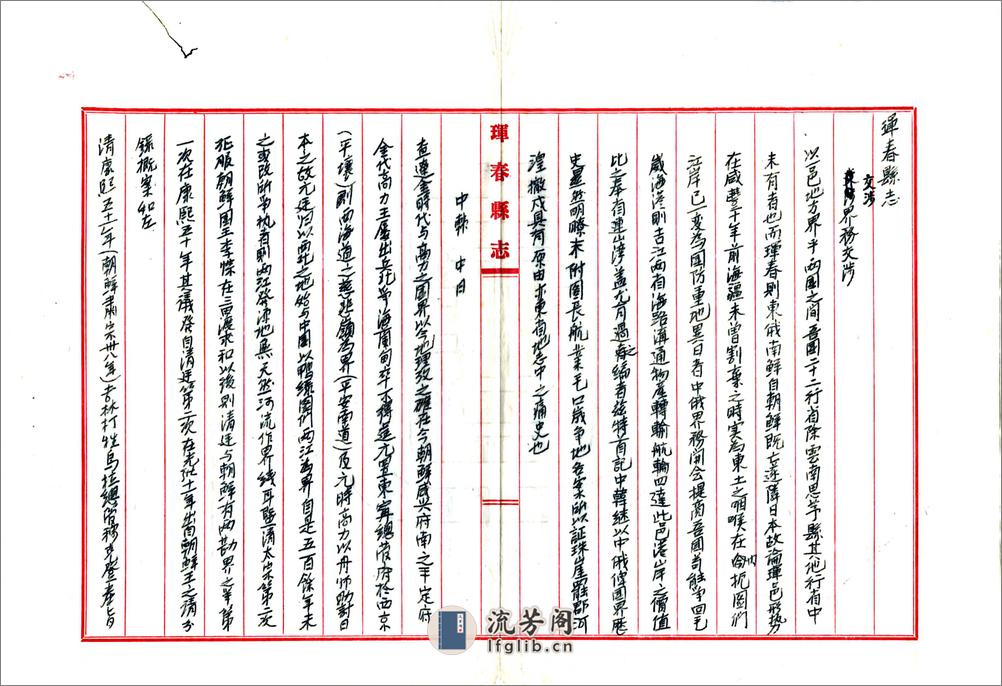 琿春縣志
交涉
界務交涉
以一邑地方界乎兩國之間吾國二十二行省除雲南思茅縣其他行省中
未有者也而琿春則東俄南鮮自朝鮮既亡遂隣日本故論琿邑形勢
在咸豐十年前海疆未曾割棄之時实為東土之咽喉在今扼圖們
江岸已一變為國防重地異日者中俄界務開会提商吾國苟能爭回毛
崴海港則吉江两省海路溝通物產轉輸航輪四達此邑港岸之價值
比之奉省連山灣盖尤有過之編者茲特首記中韓继以中俄俾國界歷
史显然明瞭末附圖長航業毛口崴争地各案所以証珠崖罷郡河
湟撤戍具有原由亦東省地志中之痛史也
中韓 中日
琿春縣志
查遼金時代与高力之国界以今地理攷之確在今朝鮮咸興府南之平定府
金代高力王屡出兵北爭海蘭甸卒不得逞元置東寧總管府於西京
(平壤)則西海道之慈悲嶺為界(平安南道)及元時高力以舟师助討日
本之故元廷归以南北之地始与中國以鴨绿圖們两江為界自是五百餘年未
之或改所爭执者則两江發源地無天然河流作界线耳暨清太宗第二次
征服朝鮮国王李倧在三田渡求和以後則清廷与朝鮮有两勘界之举第
一次在康熙五十年其議發自清廷第二次在光緒十一年出自朝鮮王之请分
録概案如左
清康熙五十一年(朝鮮肅宗卅八年)吉林打牲烏拉總管穆克登奉旨
流芳阁
lfglib.cn